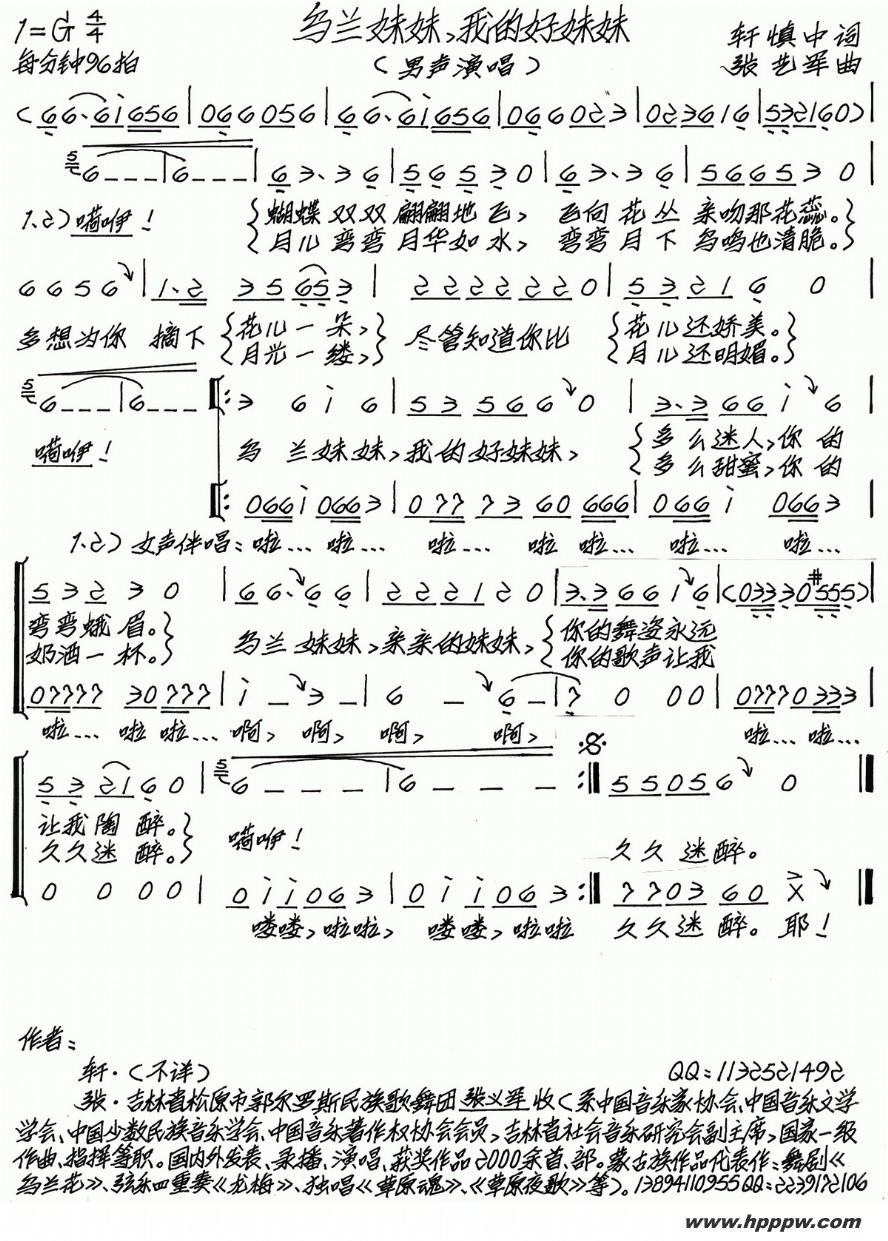 1=G 4/4
乌兰妹妹,我的好妹妹
轩慎中词
每分钟96拍
(男声演唱)
张艺军曲
(66·6i656|066056|66·6i656|066023|023616|532160)|
6---|6---|63·36|56530|63·36|566530|
1.2)嗬咿!
蝴蝶双双翩翩地飞,飞向花丛亲吻那花蕊。
月儿弯弯月华如水,弯弯月下鸟鸣也清脆。
6656|1·2 35653|2222220|53216 0|
多想为你摘下
花儿一朵,
月光一缕,
尽管知道你比
花儿还娇美。
月儿还明媚。
6---|6---‖:3 6i6|535660|3·366i6|
嗬咿!
乌兰妹妹,我的好妹妹,
多么迷人,你的
多么甜蜜,你的
‖:066i0663|0777360666|066i 0663|
1.2)女声伴唱:啦... 啦... 啦... 啦 啦... 啦... 啦...
53230|66·66|222120|3·366i6|(03330#555)|
弯弯蛾眉。
奶酒一杯。
乌兰妹妹,亲亲的妹妹,
你的舞姿永远
你的歌声让我
07777 30777|i-3-|6-6-|7 0 00|07770333|
啦... 啦 啦... 啊, 啊, 啊, 啊, 啦... 啦...
532160|6---|6---:‖55056 0‖
让我陶醉。
久久迷醉。
嗬咿!
久久迷醉。
0 0 00|0ii063|0ii063:‖770360X‖
喽喽,啦啦, 喽喽,啦啦 久久迷醉。耶!
作者:
轩·(不详)
QQ:1132521492
张·吉林省松原市郭尔罗斯民族歌舞团张义军收(系中国音乐家协会、中国音乐文学
学会、中国少数民族音乐学会、中国音乐著作权协会会员,吉林省社会音乐研究会副主席,国家一级
作曲、指挥等职。国内外发表、录播、演唱、获奖作品2000余首、部。蒙古族作品代表作:舞剧《
乌兰花》、弦乐四重奏《龙梅》、独唱《草原魂》、《草原夜歌》等)。13894110955QQ:2239172106
www.hpppw.com